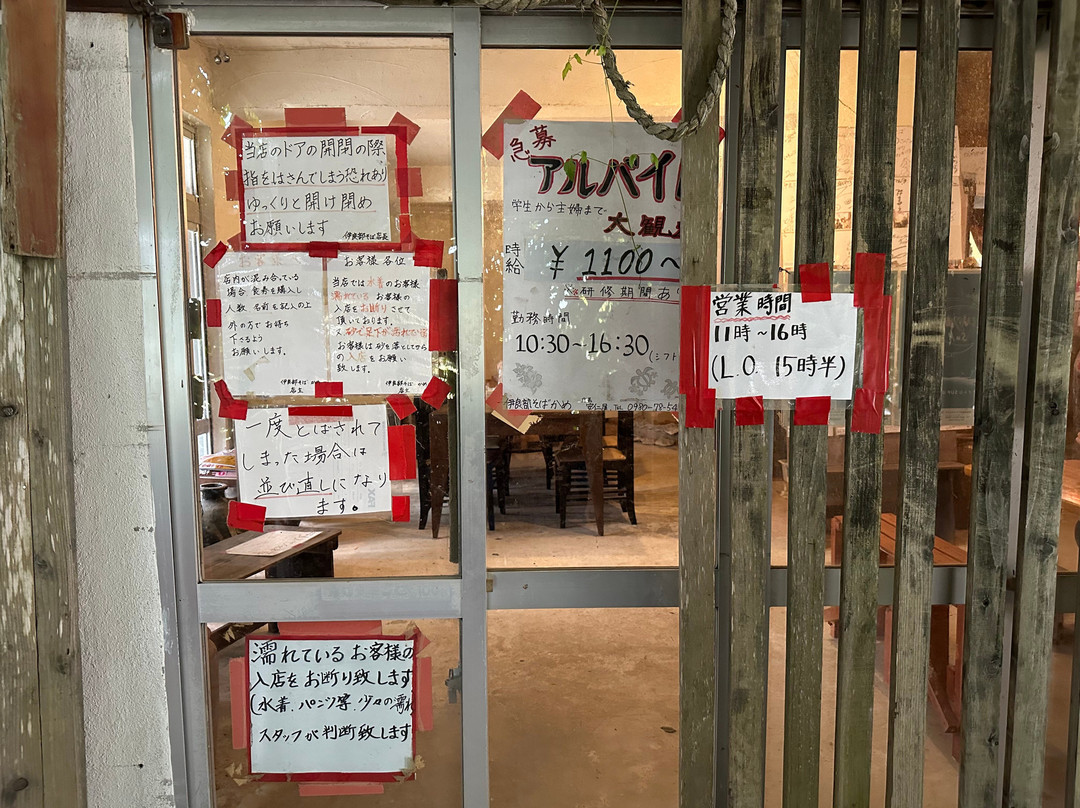 当店のドアの開閉の際
指をはさんでしまう恐れあり
ゆっくりと開け閉め
お願いします
伊良部そば店長
お客様
店内が混み合っている
場合 食券を購入し
人数 名前を記入の上
外の方でお待ち
下さるよう
お願いします。
伊良部そば かめ
店主
お客様各位
当店では水着のお客様
濡れている お客様の
入店をお断りさせて
頂いております。
又 砂で足下が汚れている
お客様は砂を落としてから
の入店をお願い
致します。
伊良部そば かめ
店主
一度とばされて
しまった場合は
並び直しになり
ます。
濡れているお客様の
入店をお断り致します
(水着、パンツ等、少々の濡れ
スタッフが判断致します
急募
アルバイト
学生から主婦まで
大歓迎
時給 ¥1100~
※研修期間あり
勤務時間
10:30~16:30(シフト
伊良部そばかめ
TEL 0980-78-54
営業時間
11時~16時
(L.O. 15時半)